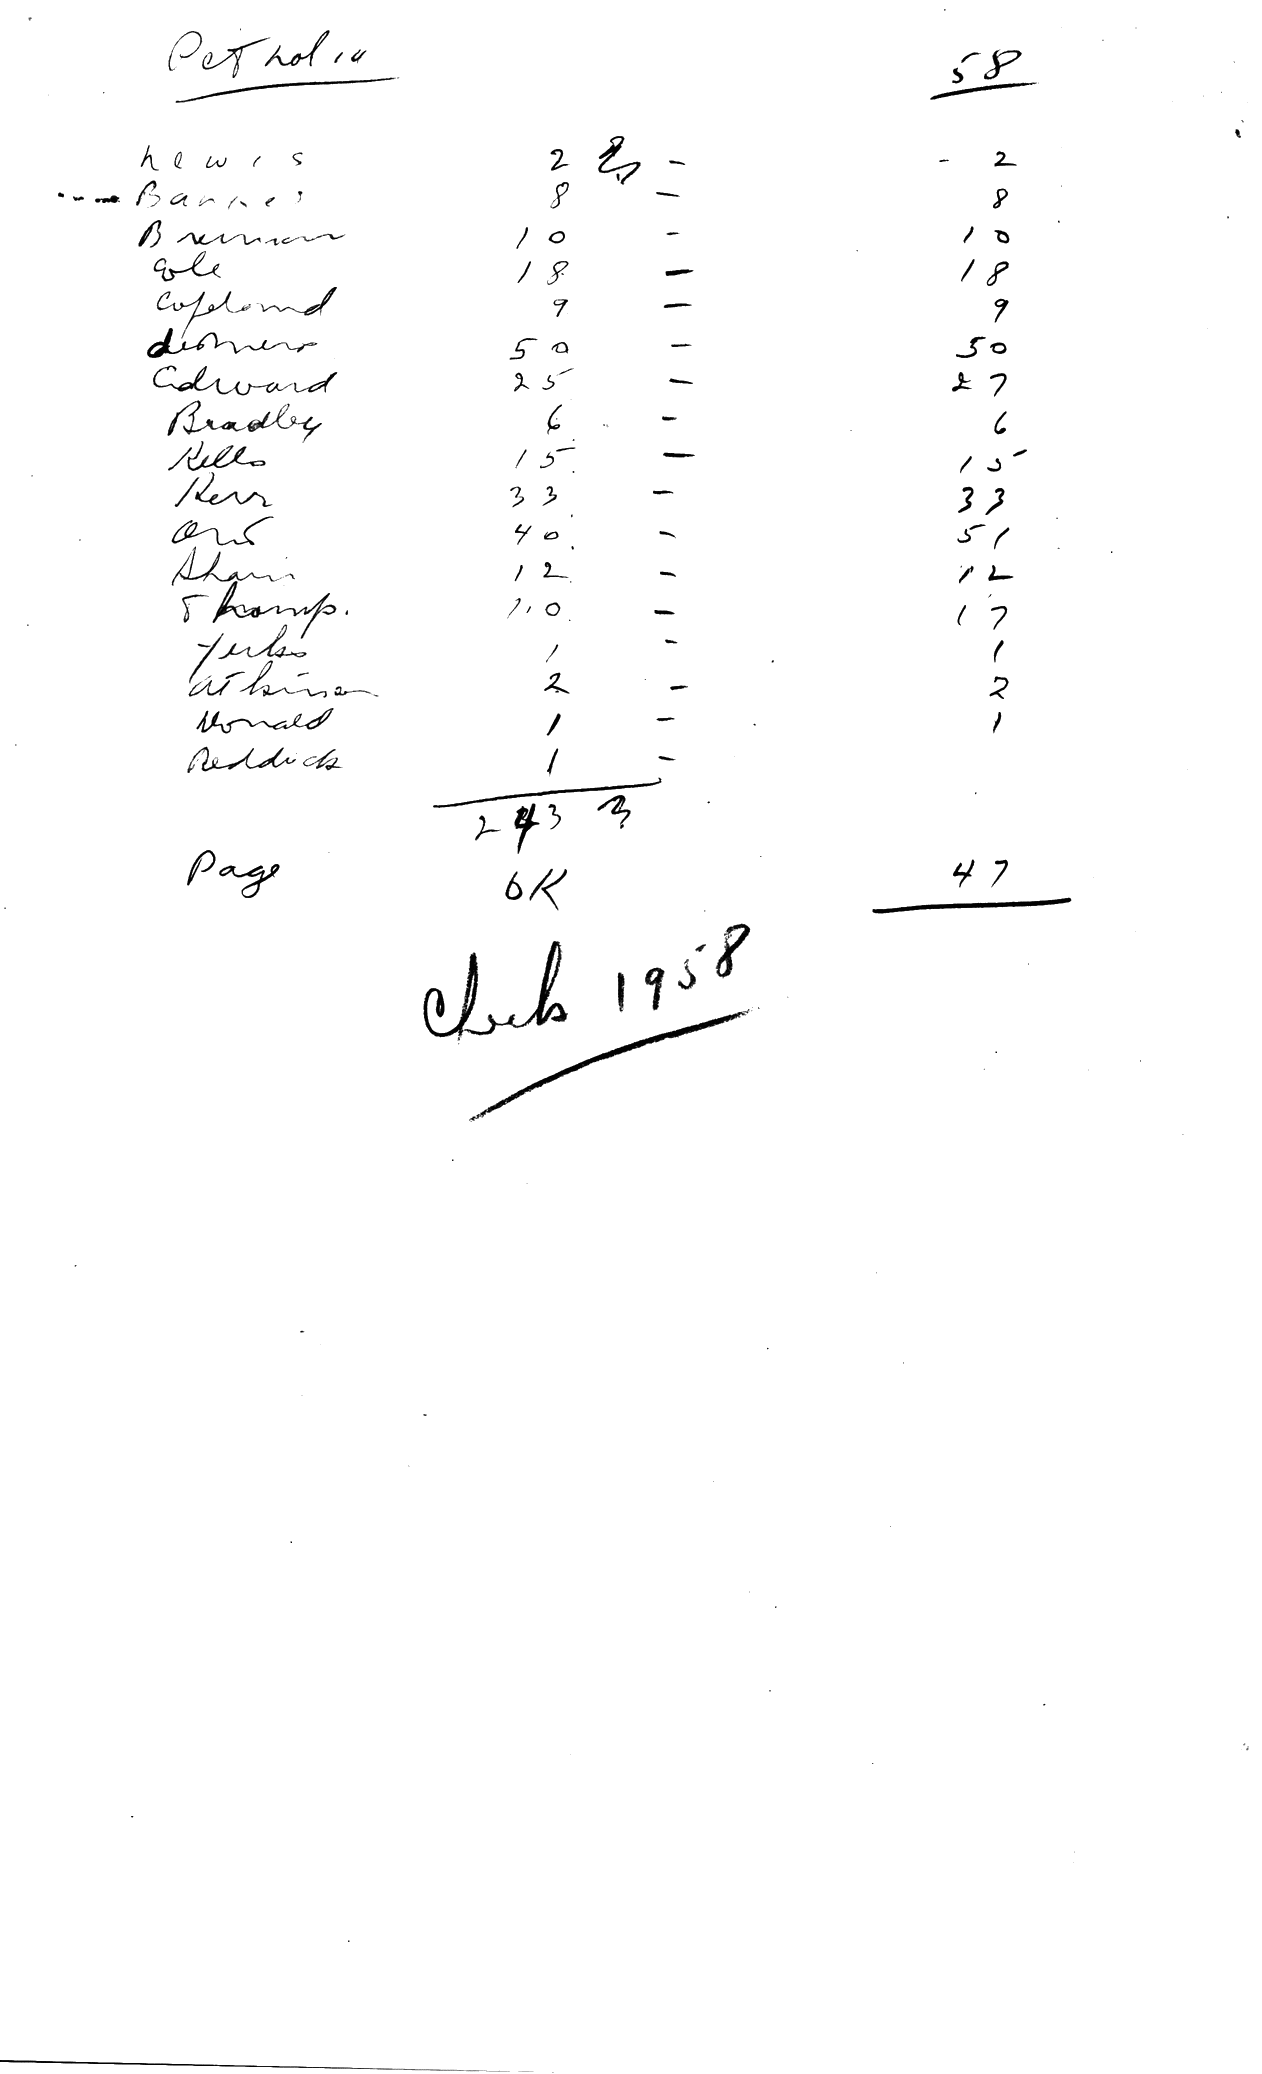 Petrolia 58
Lewis 2 - - 2
Barnes 8 - 8
Brennan 10 - 10
Cole 18 - 18
Copeland 9 - 9
50 - 50
Edward 25 - 27
Bradley 6 - 6
Kells 15 - 15
Kerr 33 - 33
Orr 40 - 51
12 - 12
Thomp. 10 - 17
Yerks 1 - 1
Atkinson 2 - 2
Donald 1 - 1
Reddick 1 -
243 3
Page OK 47
Check 1958